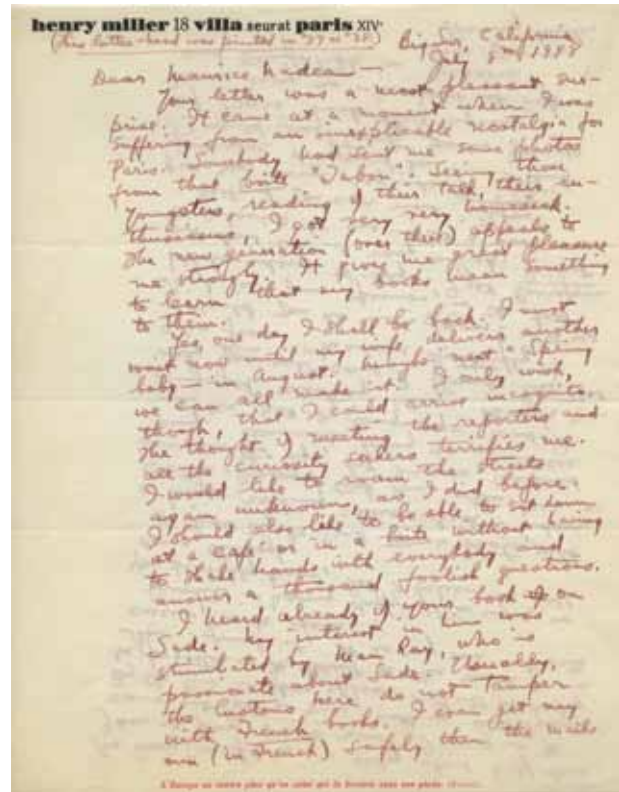 henry miller 18 villa seurat paris XIVe
(This letter-head was printed in '37 or '38)
Big Sur, California
July
Dear Maurice Nadeau—
Your letter was a most pleasant sur-
prise. It came at a moment when I was
suffering from an inexplicable nostalgia for
Paris. Somebody had sent me some photos
from that boite "Tabou". Seeing those
youngsters, reading of their talk, their en-
thusiasms, I got very very homesick.
The new generation (over there) appeals to
me strongly. It gives me great pleasure
to learn that my books mean something
to them.
Yes, one day I shall be back. I must
wait now until my wife delivers another
baby—in August. Maybe next Spring
we can all make it. I only wish,
though, that I could arrive incognito.
The thought of meeting the reporters and
all the curiosity seekers terrifies me.
I would like to roam the streets
again unknown, as I did before.
I should also like to be able to sit down
at a café or in a boite without having
to shake hands with everybody and
answer a thousand foolish questions.
I heard already of your book on
Sade. My interest in him was
stimulated by Man Ray, who is
passionate about Sade. Usually,
the Customs here do not tamper
with French books. I even get my
own (in French) safely thru the mails